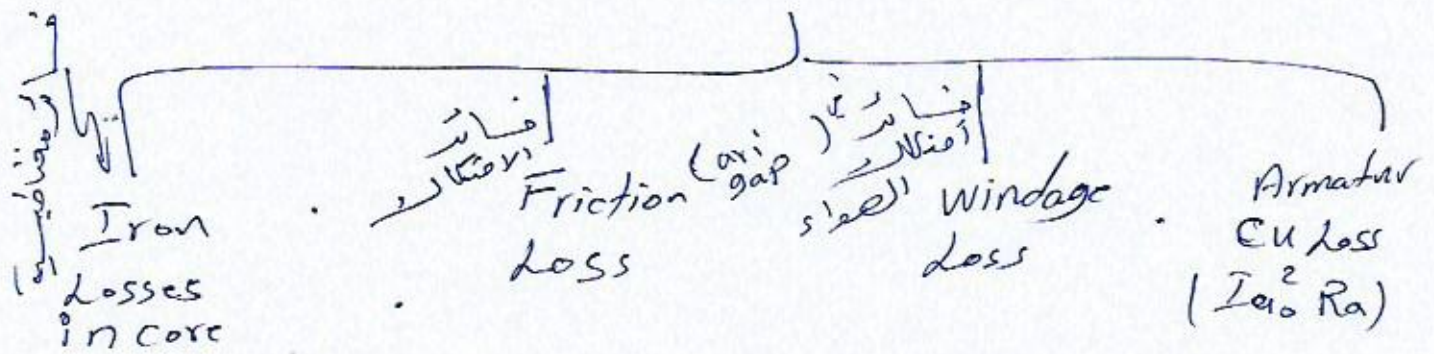 Iron
Losses
in core
فائد
الاحتكاك
Friction
Loss
(ari
gap)
احتكاك
الهواء
Windage
Loss
Armatur
Cu Loss
(Iao² Ra)